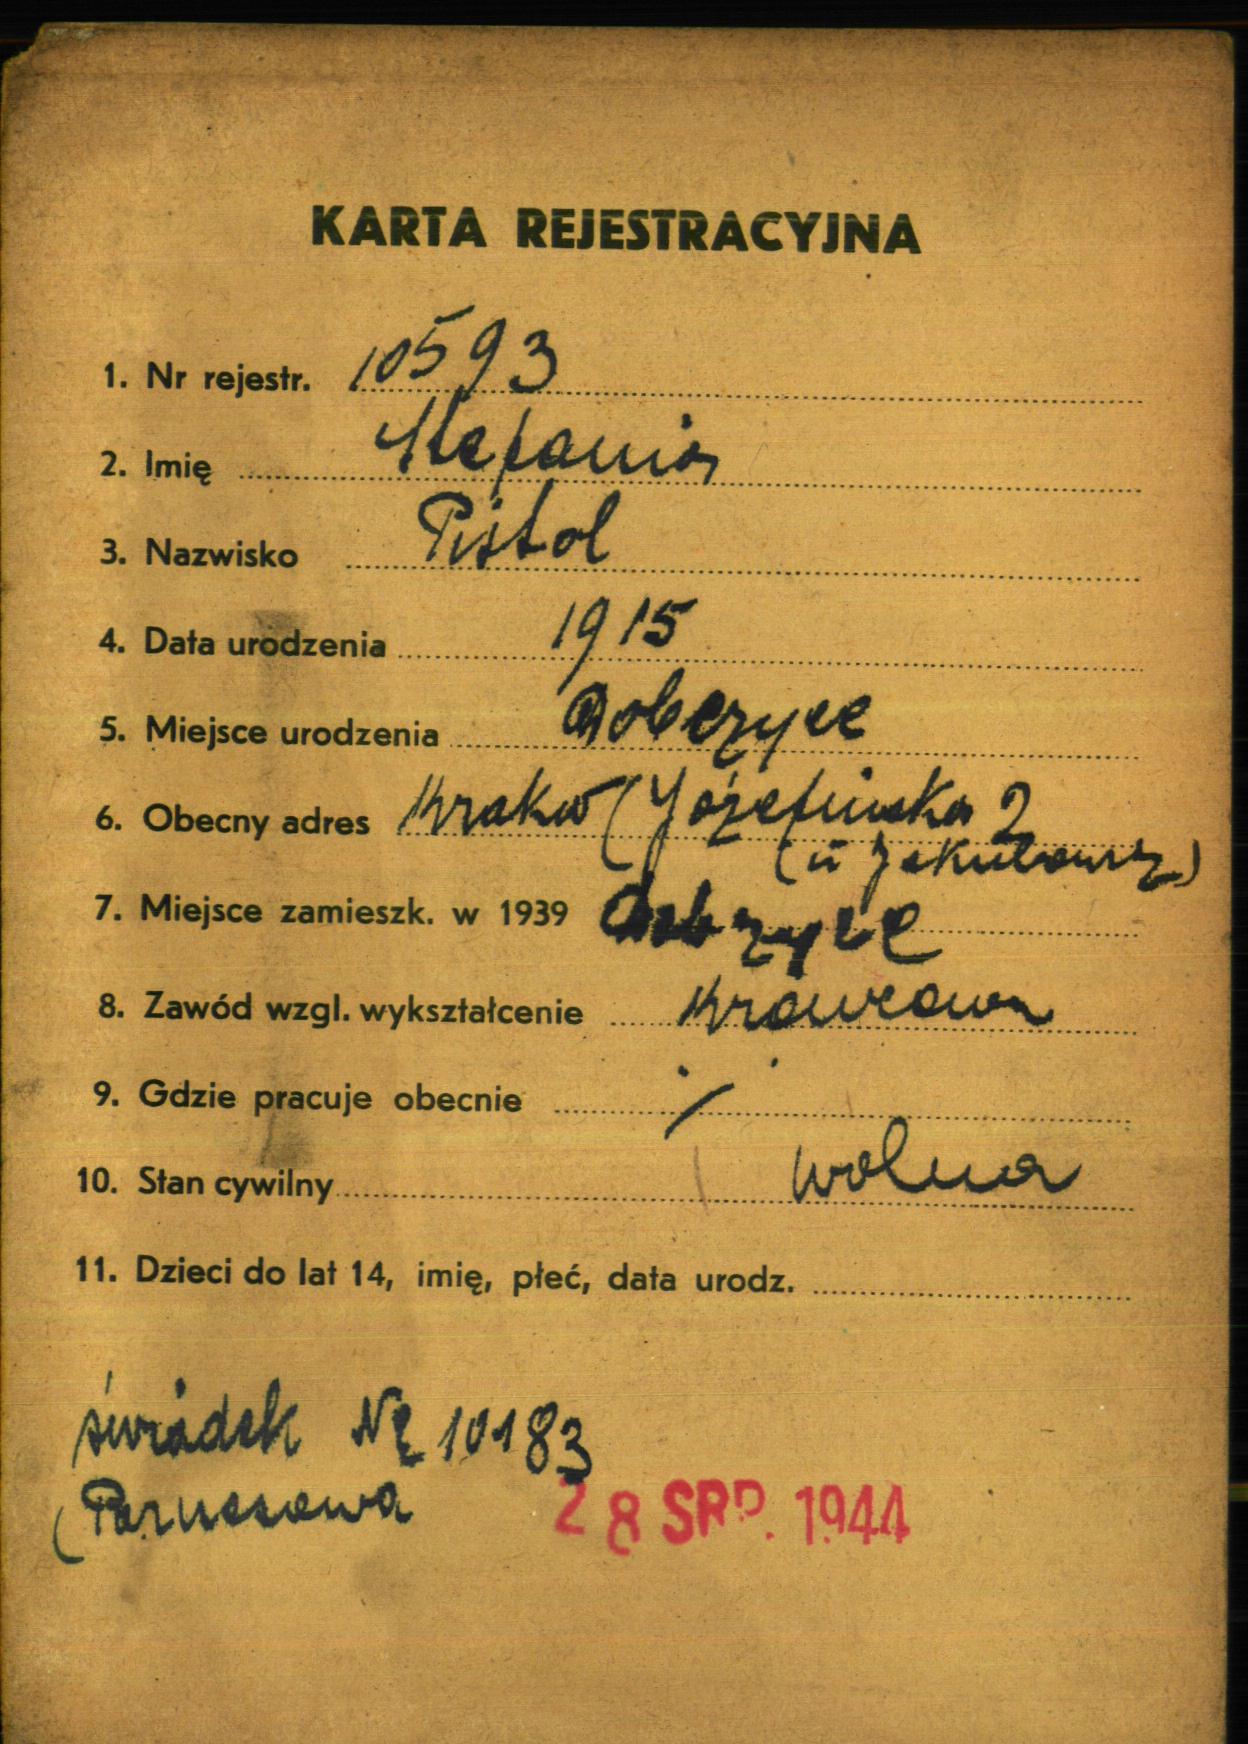 KARTA REJESTRACYJNA
1. Nr rejestr. 10593
2. Imię Stefania
3. Nazwisko Pistol
4. Data urodzenia 1915
5. Miejsce urodzenia Dobczyce
6. Obecny adres Kraków (Józefińska 2
(u
7. Miejsce zamieszk. w 1939 Dobczyce
8. Zawód wzgl. wykształcenie Krawcowa
9. Gdzie pracuje obecnie
10. Stan cywilny wolna
11. Dzieci do lat 14, imię, płeć, data urodz.
świadek № 10183
28 SRP. 1944